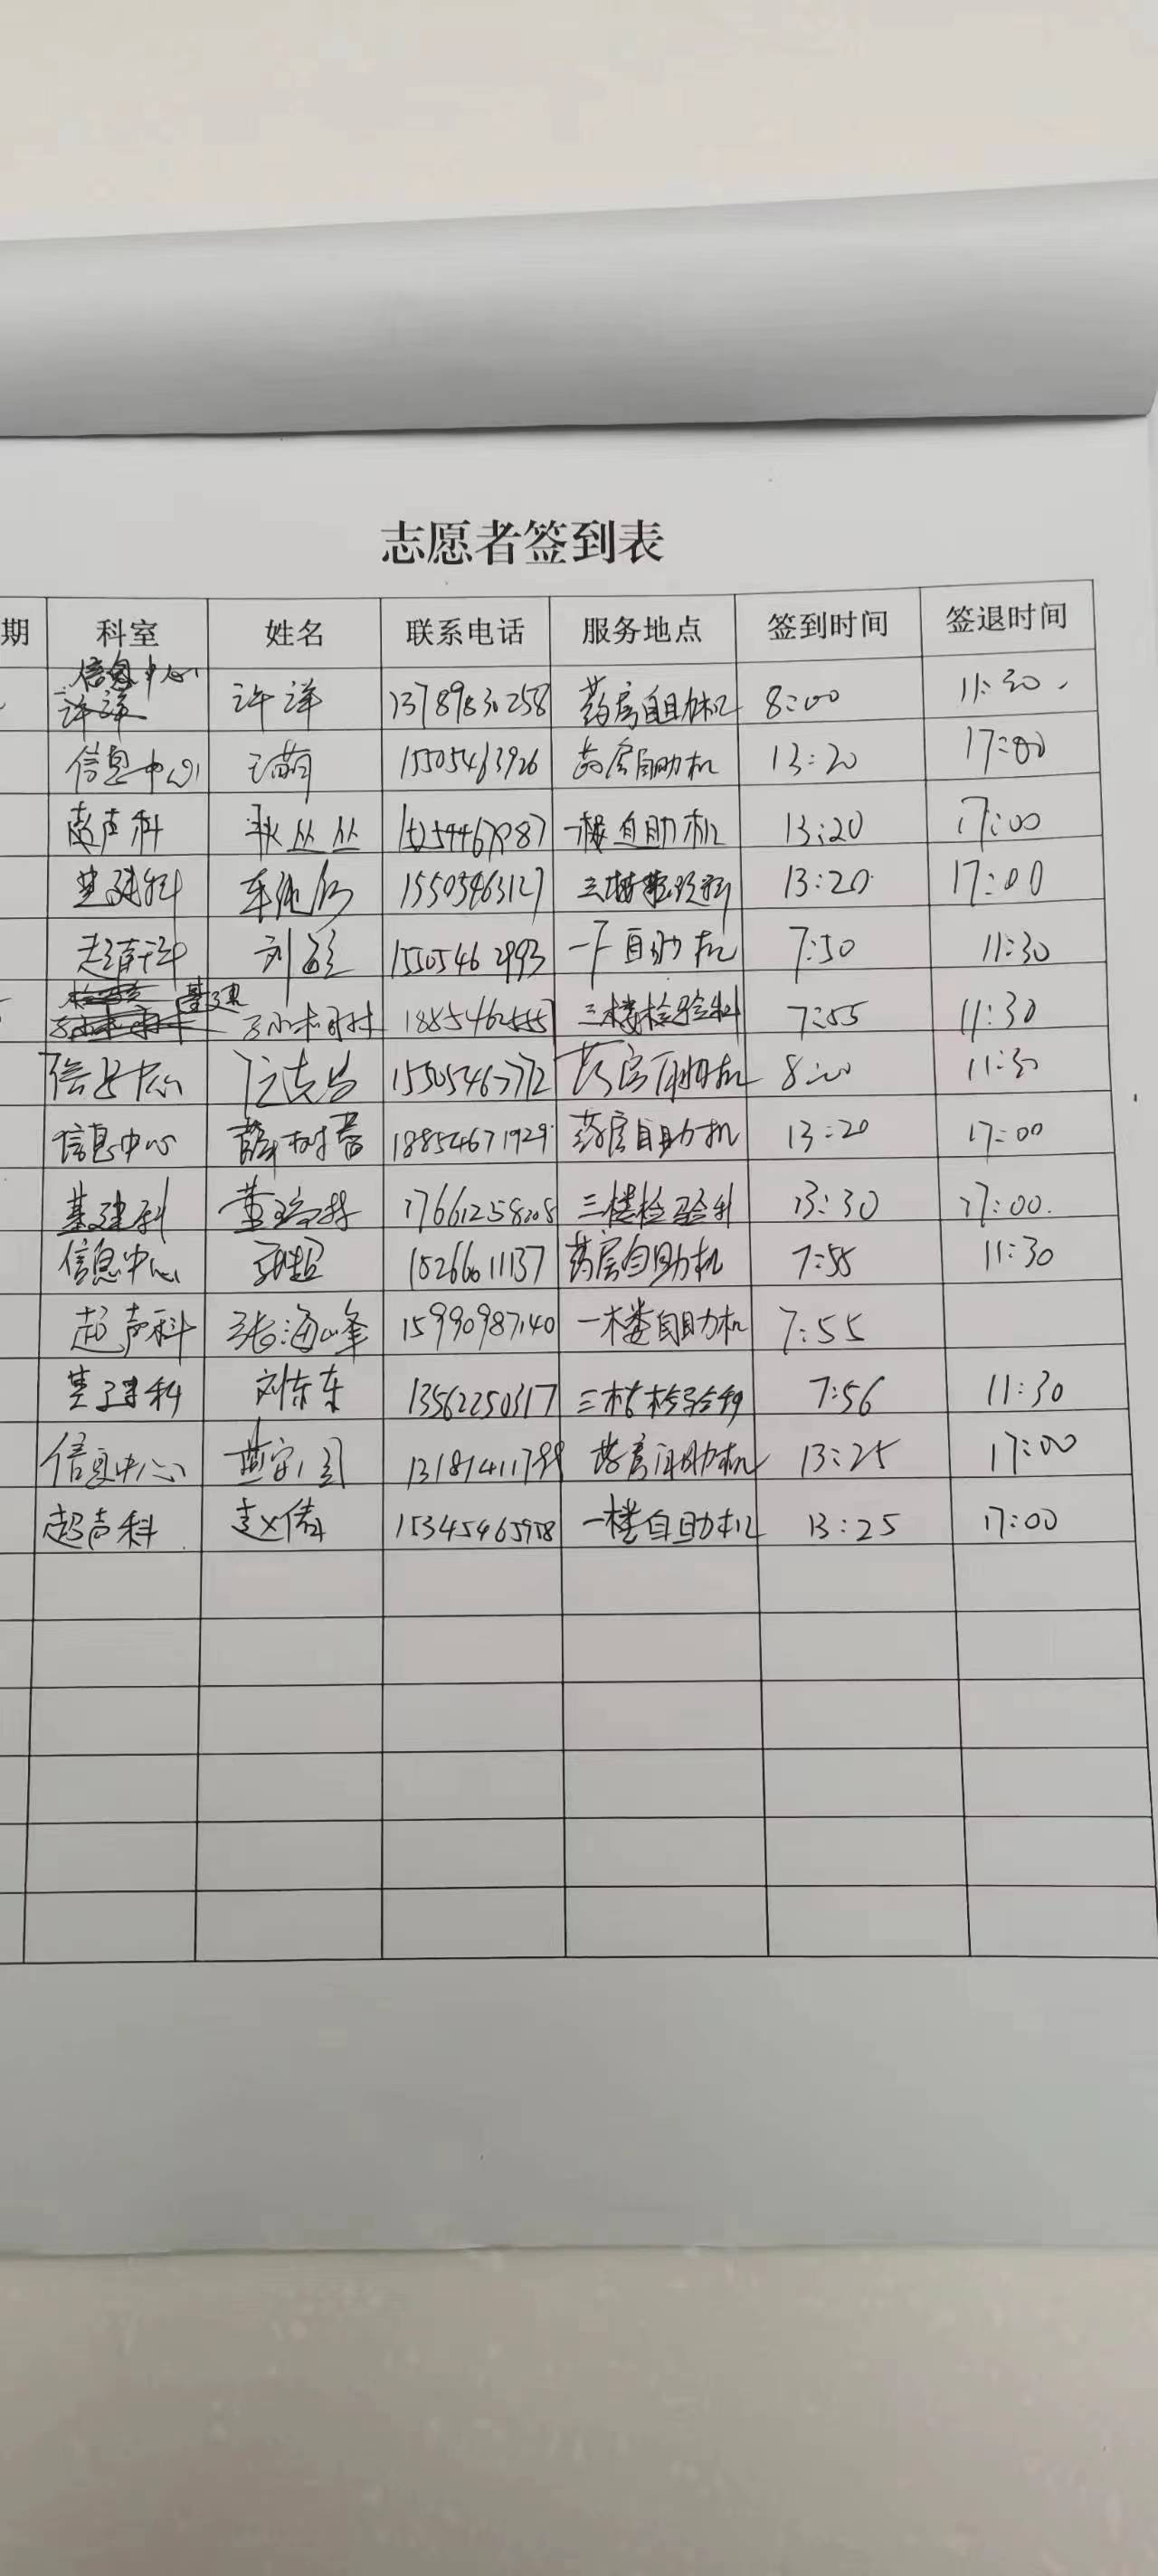 志愿者签到表
期 科室 姓名 联系电话 服务地点 签到时间 签退时间
信息中心 许洋 13789830258 药房自助机 8:00 11:30
信息中心 王萌 15505463926 药房自助机 13:20 17:00
超声科 耿丛丛 一楼自助机 13:20 17:00
基建科 15505463127 三楼检验科 13:20 17:00
超声科 刘 15505462993 一F自助机 7:50 11:30
基建 1885462555 三楼检验科 7:55 11:30
信息中心 15505463772 药房自助机 8:00 11:30
信息中心 薛树蕾 18854671929 药房自助机 13:20 17:00
基建科 董 17661258208 三楼检验科 13:30 17:00.
信息中心 15266611137 药房自助机 7:55 11:30
超声科 张海峰 15990987140 一楼自助机 7:55
基建科 刘东东 13562250317 三楼检验科 7:56 11:30
信息中心 13181411799 药房自助机 13:25 17:00
超声科 赵倩 15345465958 一楼自助机 13:25 17:00